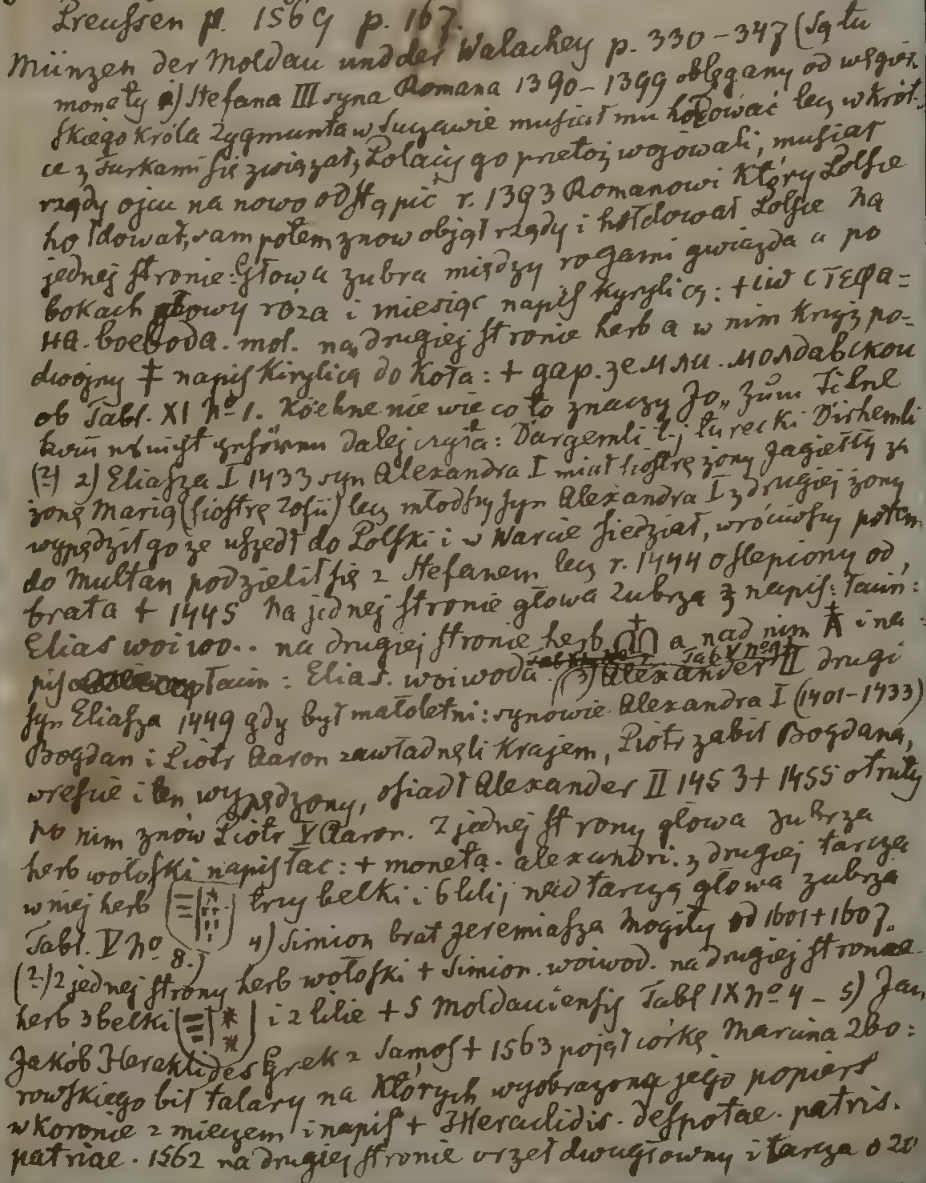 Preussen p. 1569 p. 167.
Münzen der Moldau und der Walachey p. 330-347 (Są tu
monety 1) Stefana III syna Romana 1390-1399 oblęgany od węgier
skiego króla Zygmunta w Suczawie musiał mu hołdować lecz wkrót
ce z Turkami się związał, Polacy go przetoż wojowali, musiał
rządy ojcu na nowo odstąpić r. 1393 Romanowi który Polsce
hołdował, sam potem znow objął rządy i hołdował Polsce Na
jednej stronie: Głowa zubra między rogami gwiazda a po
bokach głowy róża i miesiąc napis Kyrylicą: +iw стефа=
на. воевода. mol. na drugiej stronie herb a w nim krzyż po-
dwójny ‡ napis Kirylicą do koła: + gар. земли. молдавскои
ob Tabl. XI No 1. Köehne nie wie co to znaczy Jo,, zum Titel
dalej czyta: Dargemli t.j turecki Dirhemli
(?) 2) Eliasza I 1433 syn Alexandra I miał siostrę żony Jagiełły za
żonę Marią (siostrę Zofii) lecz młodszy syn Alexandra I z drugiej żony
wypędził go że uszedł do Polski i w Warcie siedział, wróciwszy potem
do Multan podzielił się z Stefanem lecz r. 1444 oślepiony od
brata + 1445 Na jednej stronie głowa zubrza z napis: łacin:
Elias woiwo.. na drugiej stronie herb a nad nim i na
pis łacin: Elias. woiwoda. (3) Alexander II drugi
syn Eliasza 1449 gdy był małoletni: synowie Alexandra I (1401-1433)
Bogdan i Piotr Aaron zawładnęli krajem, Piotr zabił Bogdana,
wreście i ten wypędzony, osiadł Alexander II 1453 + 1455 otruty
po nim znów Piotr V Aaron. Z jednej strony głowa zubrza
herb wołoski napis łac: + moneta. alexandri. z drugiej tarcza
w niej herb trzy belki i 6 lilij nad tarczą głowa zubrza
Tabl. V No 8.) 4) Simion brat Jeremiasza Mogiły od 1601 + 1607.
(?) z jednej strony herb wołoski + Simion. woiwod. na drugiej stronie
herb 3 belki i 2 lilie + S Moldaviensis Tabl IX No 4 - 5) Jan
Jakób Heraklides Grek z Samos + 1563 pojął córkę Marcina Zbo:
rowskiego bił talary na których wyobrażony jego popiers
w koronie z mieczem i napis + JHeraclidis. despotae. patris.
patriae. 1562 na drugiej stronie orzeł dwugłowny i tarcza o